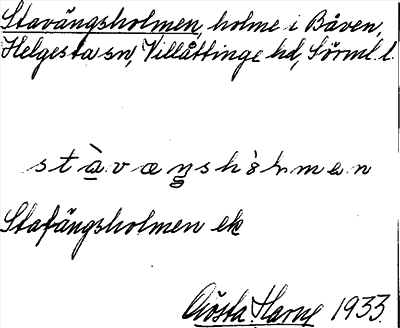 Stavängsholmen, holme i Båven,
Helgesta sn, Villåttinge hd, Sörml. l.
Stafängsholmen ek
Gösta Harng 1933.